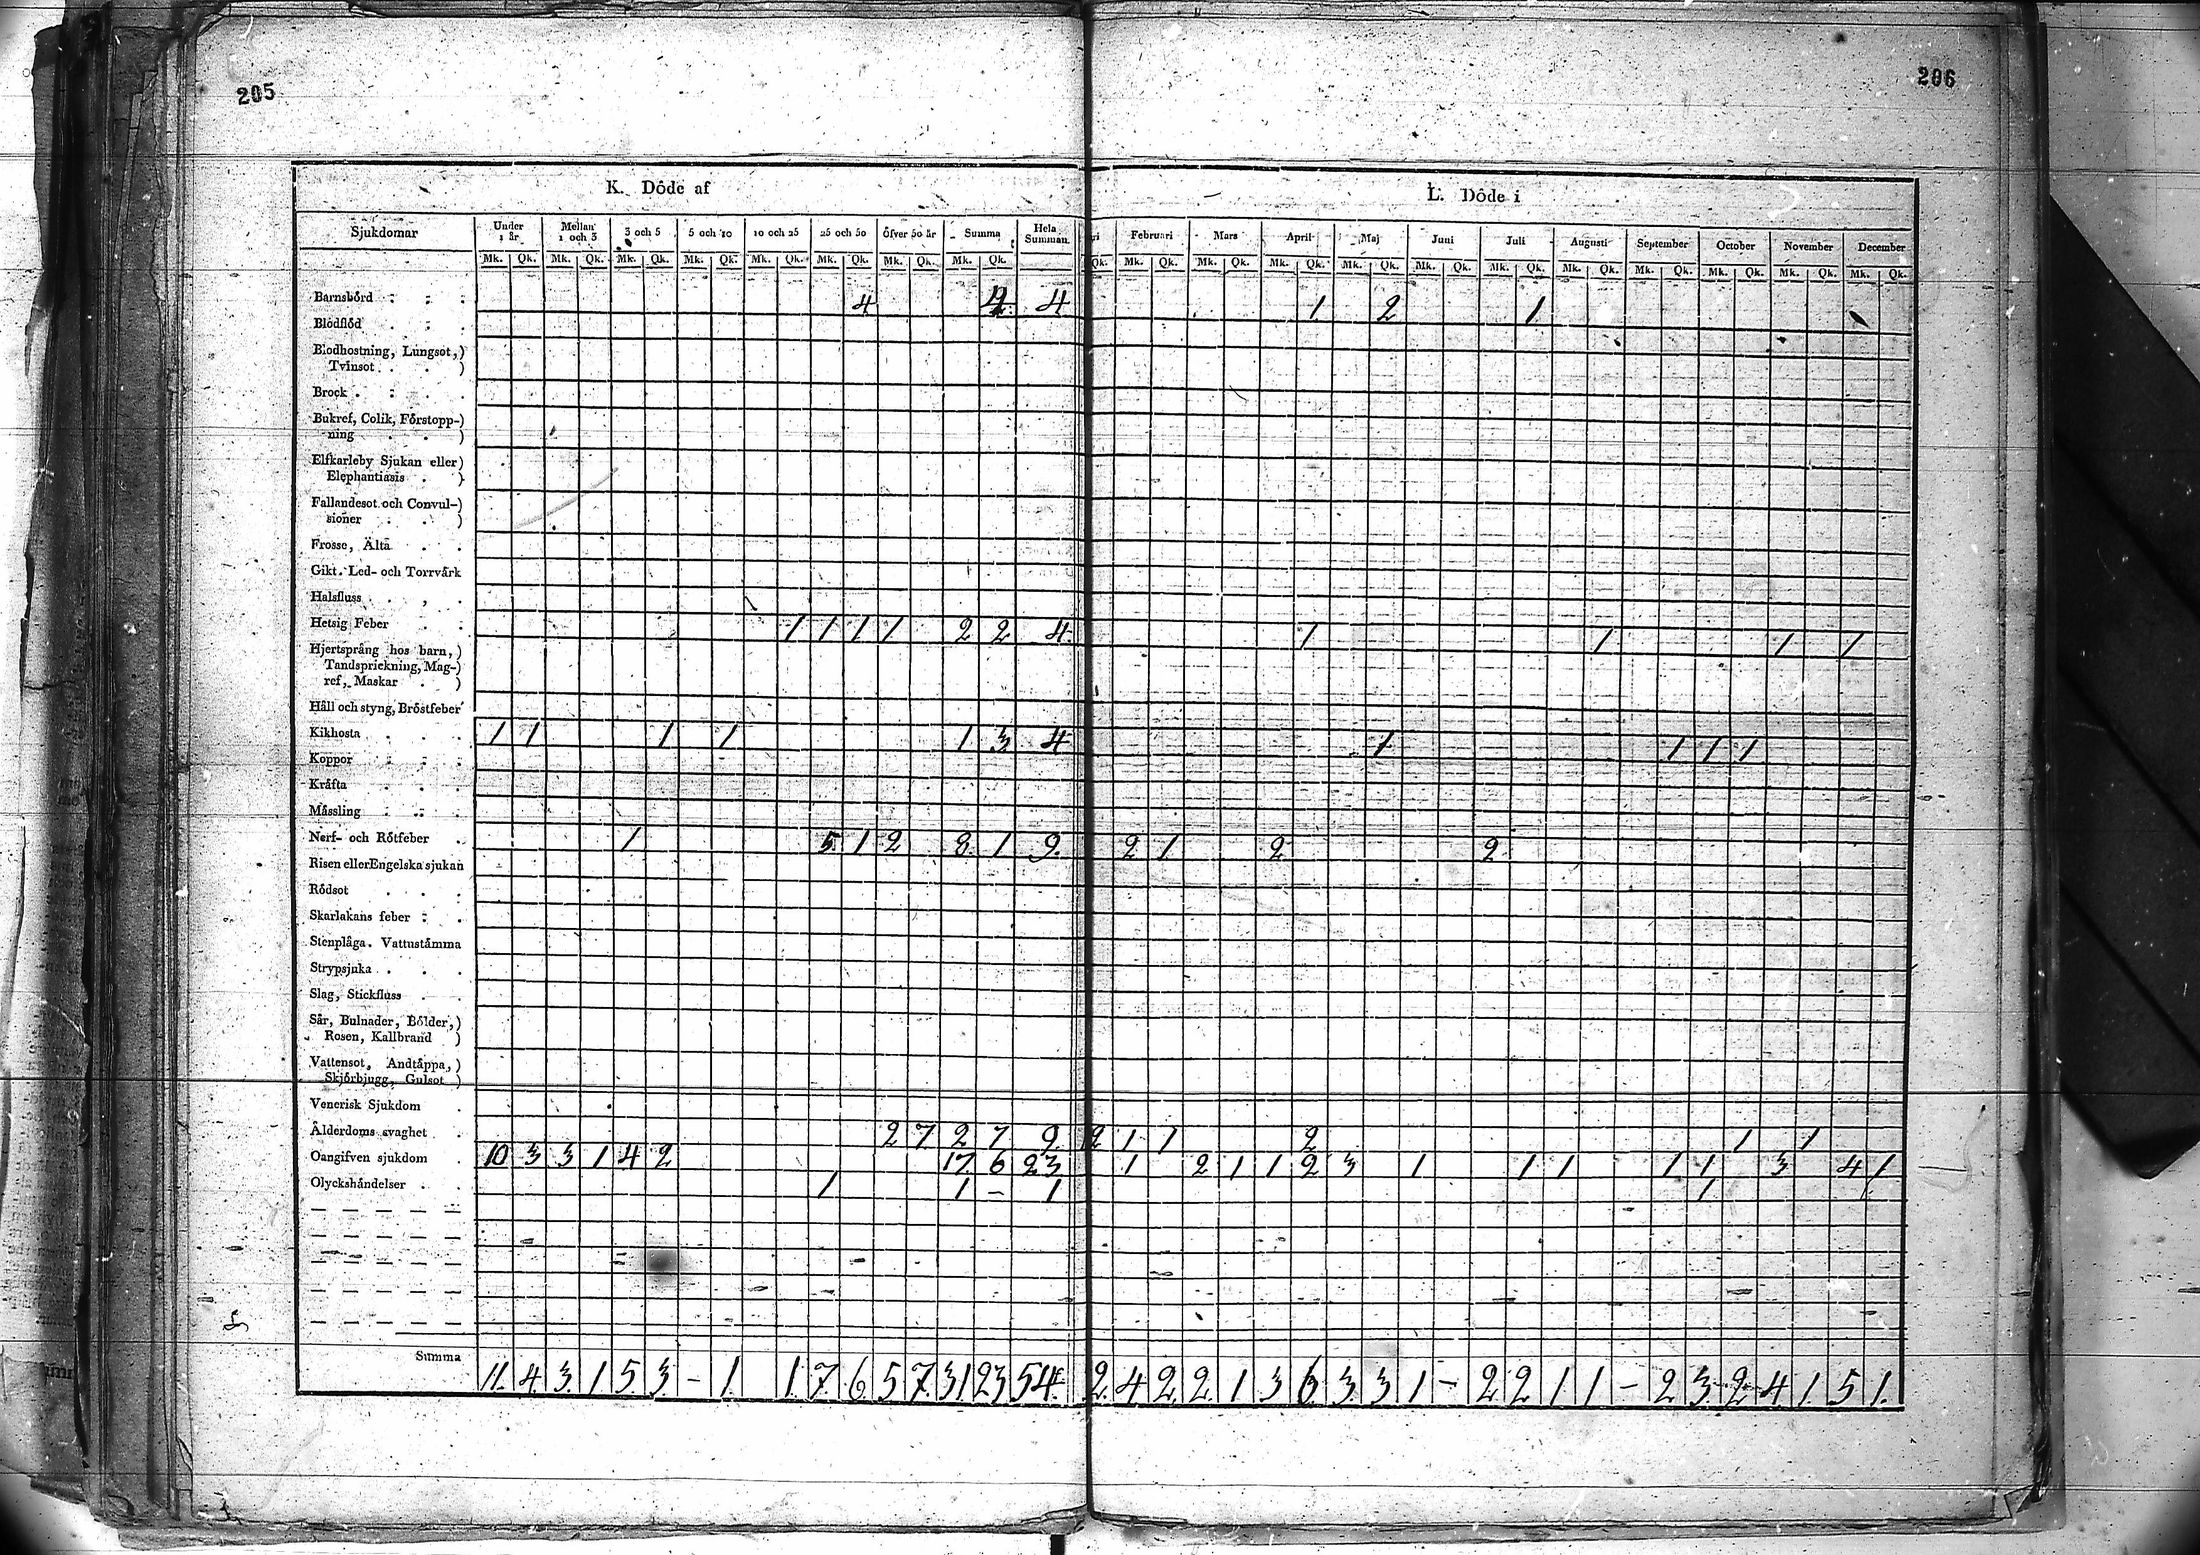 205
206
K. Döde af
L. Döde i
Sjukdomar Under 1 år Mellan 1 och 3 3 och 5 5 och 10 10 och 25 25 och 50 Öfver 50 år Summa Hela Summan ri Februari Mars April Maj Juni Juli Augusti September October November December
Mk. Qk. Mk. Qk. Mk. Qk. Mk. Qk. Mk. Qk. Mk. Qk. Mk. Qk. Mk. Qk. Qk. Mk. Qk. Mk. Qk. Mk. Qk. Mk. Qk. Mk. Qk. Mk. Qk. Mk. Qk. Mk. Qk. Mk. Qk. Mk. Qk. Mk. Qk.
Barnsbörd 4 4 4 1 2 1
Blodflöd
Blodhostning, Lungsot,)
Tvinsot . . )
Brock
Bukref, Colik, Förstopp-)
ning . . )
Elfkarleby Sjukan eller)
Elephantiasis . )
Fallandesot och Convul-)
sioner . . )
Frosse, Älta
Gikt. Led- och Torrvärk
Halsfluss
Hetsig Feber 1 1 1 1 2 2 4 1 1 1 1
Hjertsprång hos barn,)
Tandsprickning, Mag-)
ref, Maskar . )
Håll och styng, Bröstfeber
Kikhosta 1 1 1 1 1 3 4 1 1 1 1
Koppor
Kräfta
Mässling
Nerf- och Rötfeber 1 5 1 2 8 1 9 2 1 2 2
Risen eller Engelska sjukan
Rödsot
Skarlakans feber
Stenplåga. Vattustämma
Strypsjuka
Slag, Stickfluss
Sår, Bulnader, Bölder,)
Rosen, Kallbrand )
Vattensot, Andtäppa,)
Skjörbjugg, Gulsot )
Venerisk Sjukdom
Ålderdoms svaghet 2 7 2 7 9 2 1 1 2 1 1
Oangifven sjukdom 10 3 3 1 4 2 17 6 23 1 2 1 1 2 3 1 1 1 1 1 3 4 1
Olyckshändelser 1 1 – 1 1
Summa 11. 4. 3. 1 5. 3. – 1. 1. 7 6. 5 7. 31 23 54. 2. 4 2. 2. 1 3 6. 3 3 1 – 2 2 1 1 – 2 3 2 4 1 5 1.